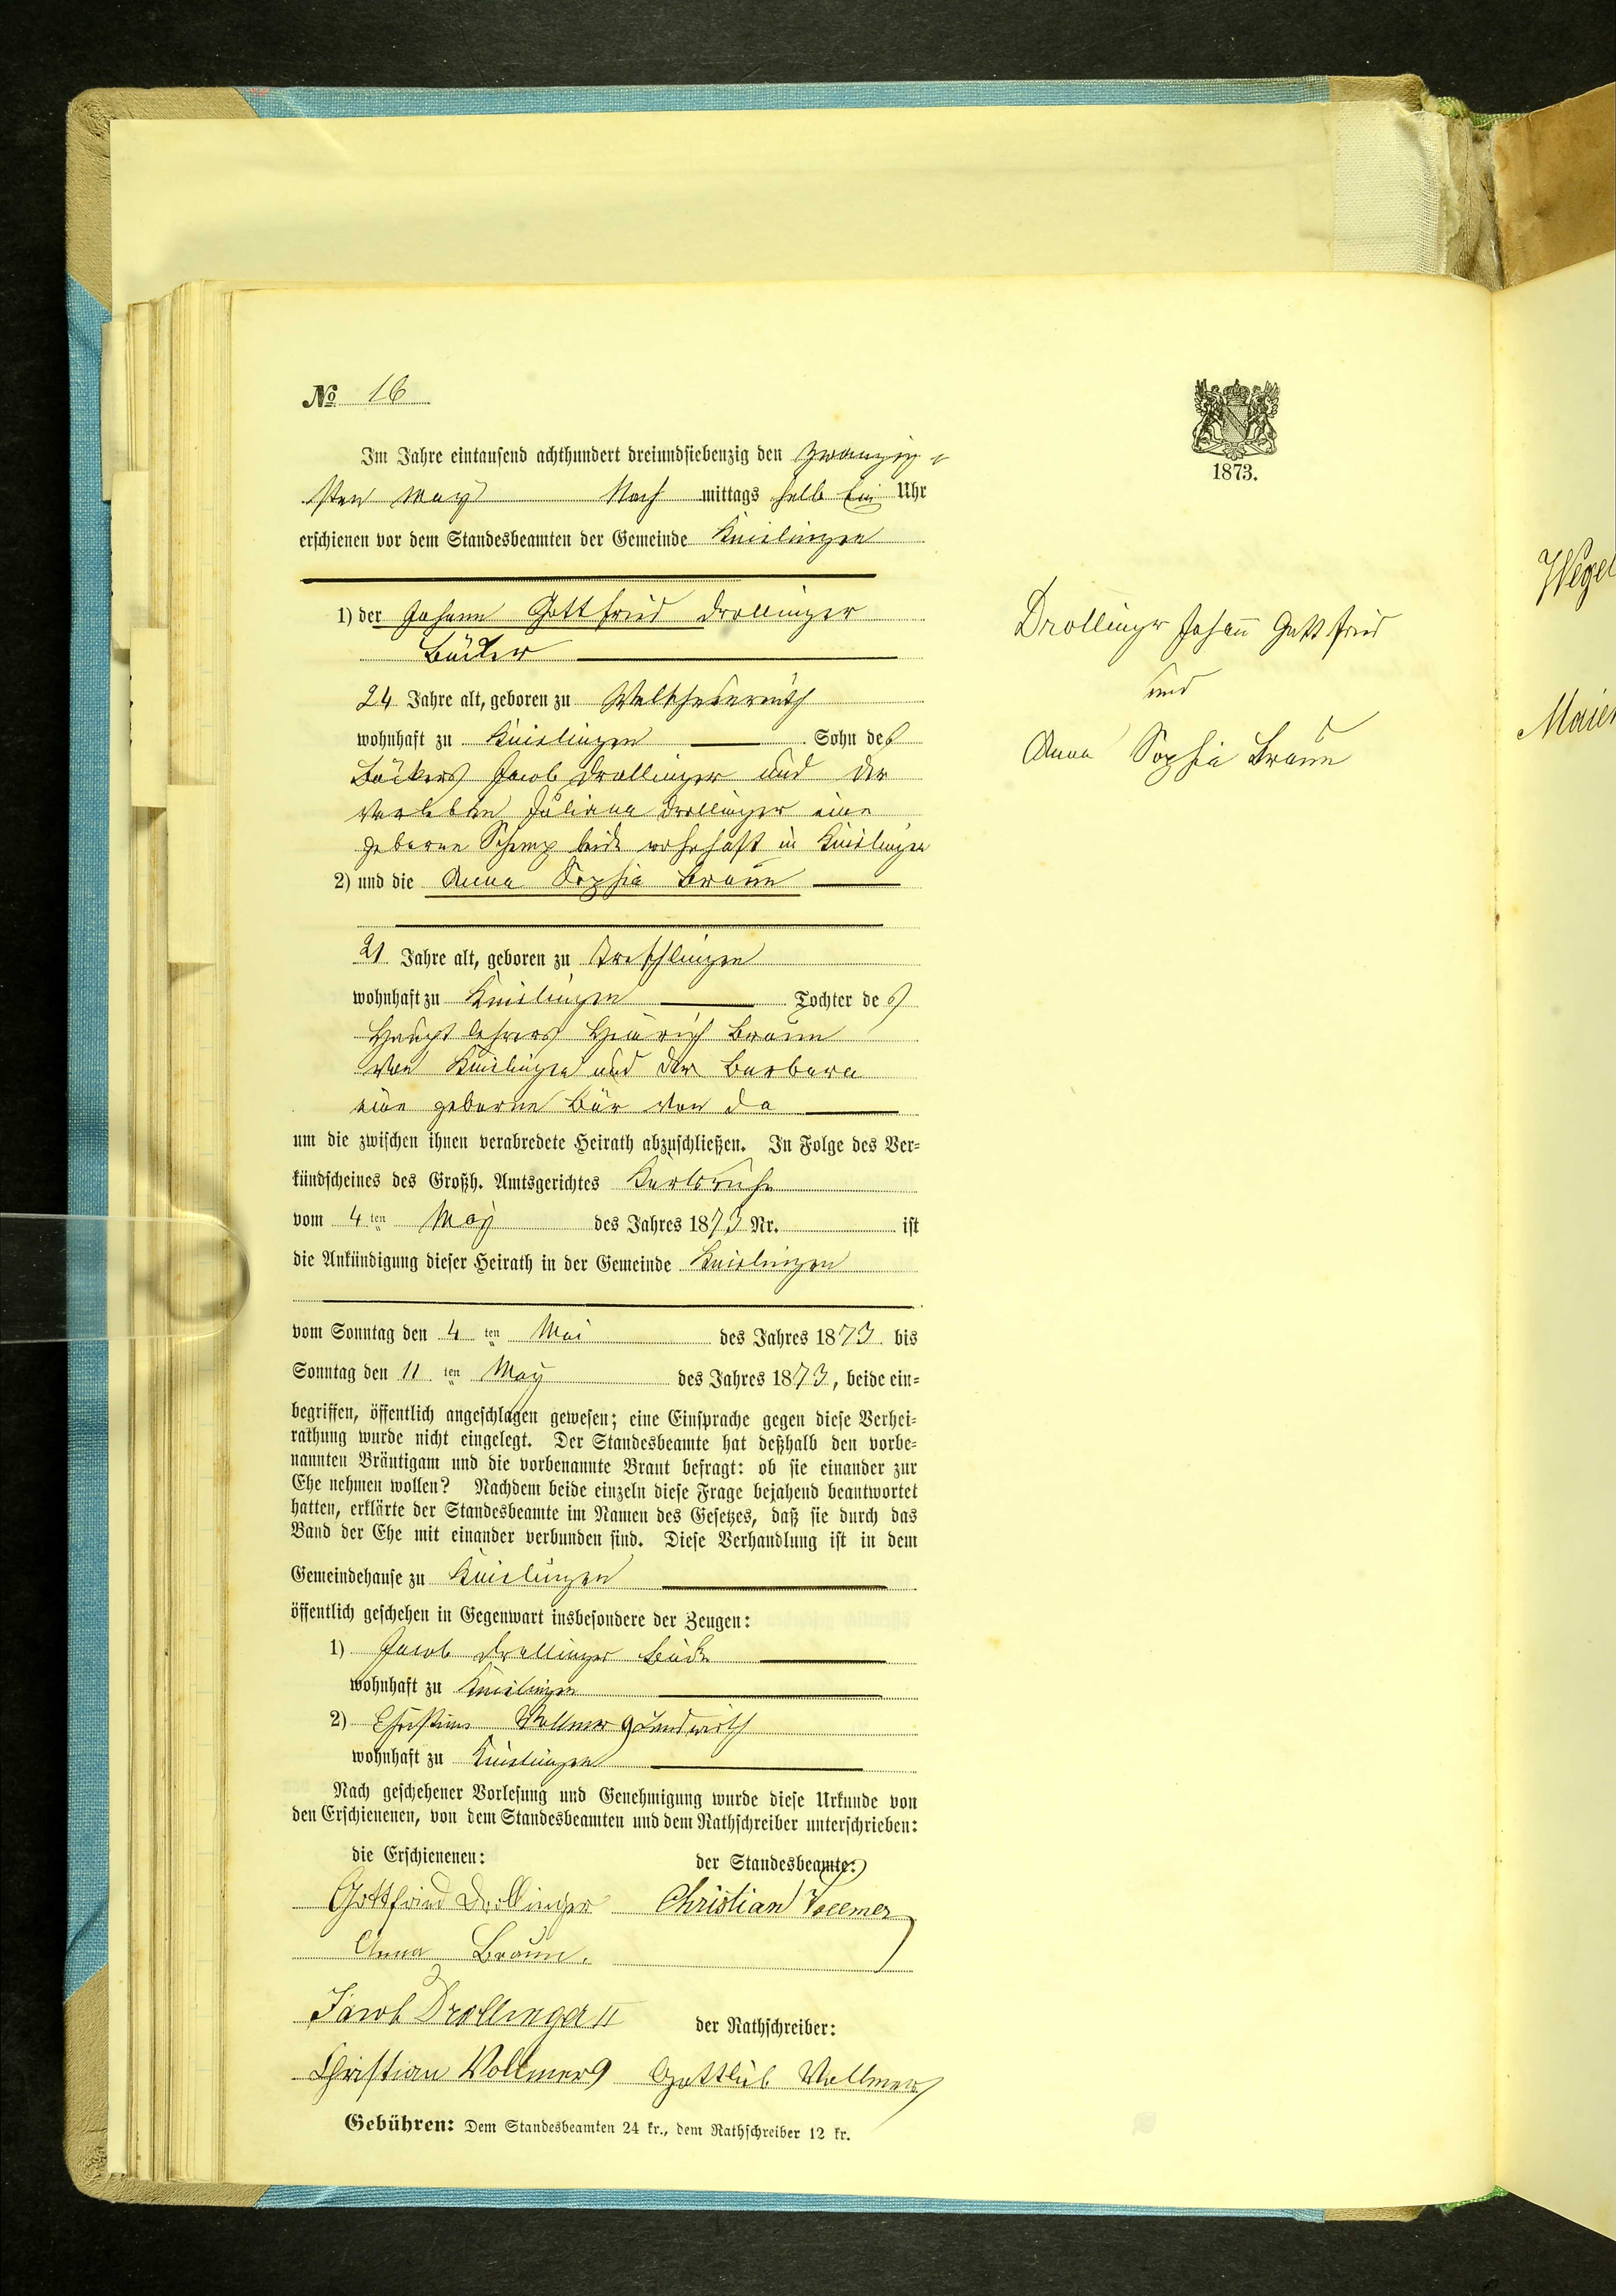 No 16
Im Jahre eintausend achthundert dreiundsiebenzig den zwanzig-
sten May Nach mittags halb Ein Uhr
erschienen vor dem Standesbeamten der Gemeinde Knielingen
1) der Johann Gottfried Drollinger
Bäcker
24 Jahre alt, geboren zu Welschneureuth
wohnhaft zu Knielingen Sohn des
Bäckers Jacob Drollinger und der
verlebten Juliana Drollinger eine
geborne Schemp beide wohnhaft in Knielingen
2) und die Anna Sophia Braun
21 Jahre alt, geboren zu Treschlingen
wohnhaft zu Knielingen Tochter des
Hauptlehrers Heinrich Braun
von Knielingen und der Barbara
eine geborne Bär von da
um die zwischen ihnen verabredete Heirath abzuschließen. In Folge des Ver=
kündscheines des Großh. Amtsgerichtes Karlsruhe
vom 4ten May des Jahres 1873 Nr. ist
die Ankündigung dieser Heirath in der Gemeinde Knielingen
vom Sonntag den 4ten Mai des Jahres 1873 bis
Sonntag den 11ten May des Jahres 1873, beide ein=
begriffen, öffentlich angeschlagen gewesen; eine Einsprache gegen diese Verhei=
rathung wurde nicht eingelegt. Der Standesbeamte hat deßhalb den vorbe=
nannten Bräutigam und die vorbenannte Braut befragt: ob sie einander zur
Ehe nehmen wollen? Nachdem beide einzeln diese Frage bejahend beantwortet
hatten, erklärte der Standesbeamte im Namen des Gesetzes, daß sie durch das
Band der Ehe mit einander verbunden sind. Diese Verhandlung ist in dem
Gemeindehause zu Knielingen
öffentlich geschehen in Gegenwart insbesondere der Zeugen:
1) Jacob Drollinger Bäcker
wohnhaft zu Knielingen
2) Christian Vollmer 9 Landwirth
wohnhaft zu Knielingen
Nach geschehener Vorlesung und Genehmigung wurde diese Urkunde von
den Erschienenen, von dem Standesbeamten und dem Rathschreiber unterschrieben:
die Erschienenen: der Standesbeamte:
Gottfried Drollinger Christian Vollmer
Anna Braun.
Jacob Drollinger II der Rathschreiber:
Christian Vollmer 9 Gottlieb Vollmer
Gebühren: Dem Standesbeamten 24 kr., dem Rathschreiber 12 kr.
1873.
Drollinger Johann Gottfried
und
Anna Sophia Braun
Wegel
Maier